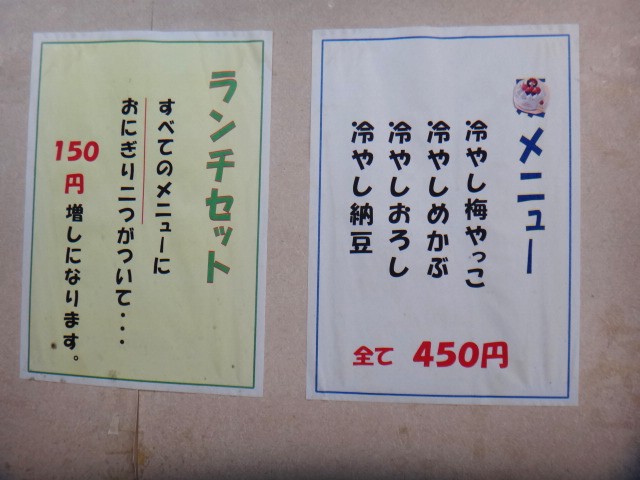 メニュー
冷やし梅やっこ
冷やしめかぶ
冷やしおろし
冷やし納豆
全て 450円
ランチセット
すべてのメニューに
おにぎり二つがついて・・・
150円増しになります。